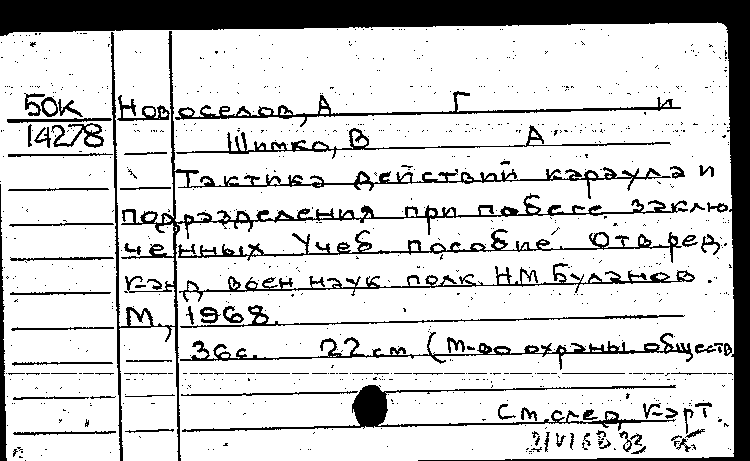 50к Новоселов, А Г и
14278 Шимко, В А
Тактика действий караула и
подразделения при побеге заклю
ченных Учеб. пособие. Отв ред.
канд. воен наук полк. Н.М. Буланов.
М., 1968.
36 с. 22 см. (М-во охраны обществ.
См. след. карт.